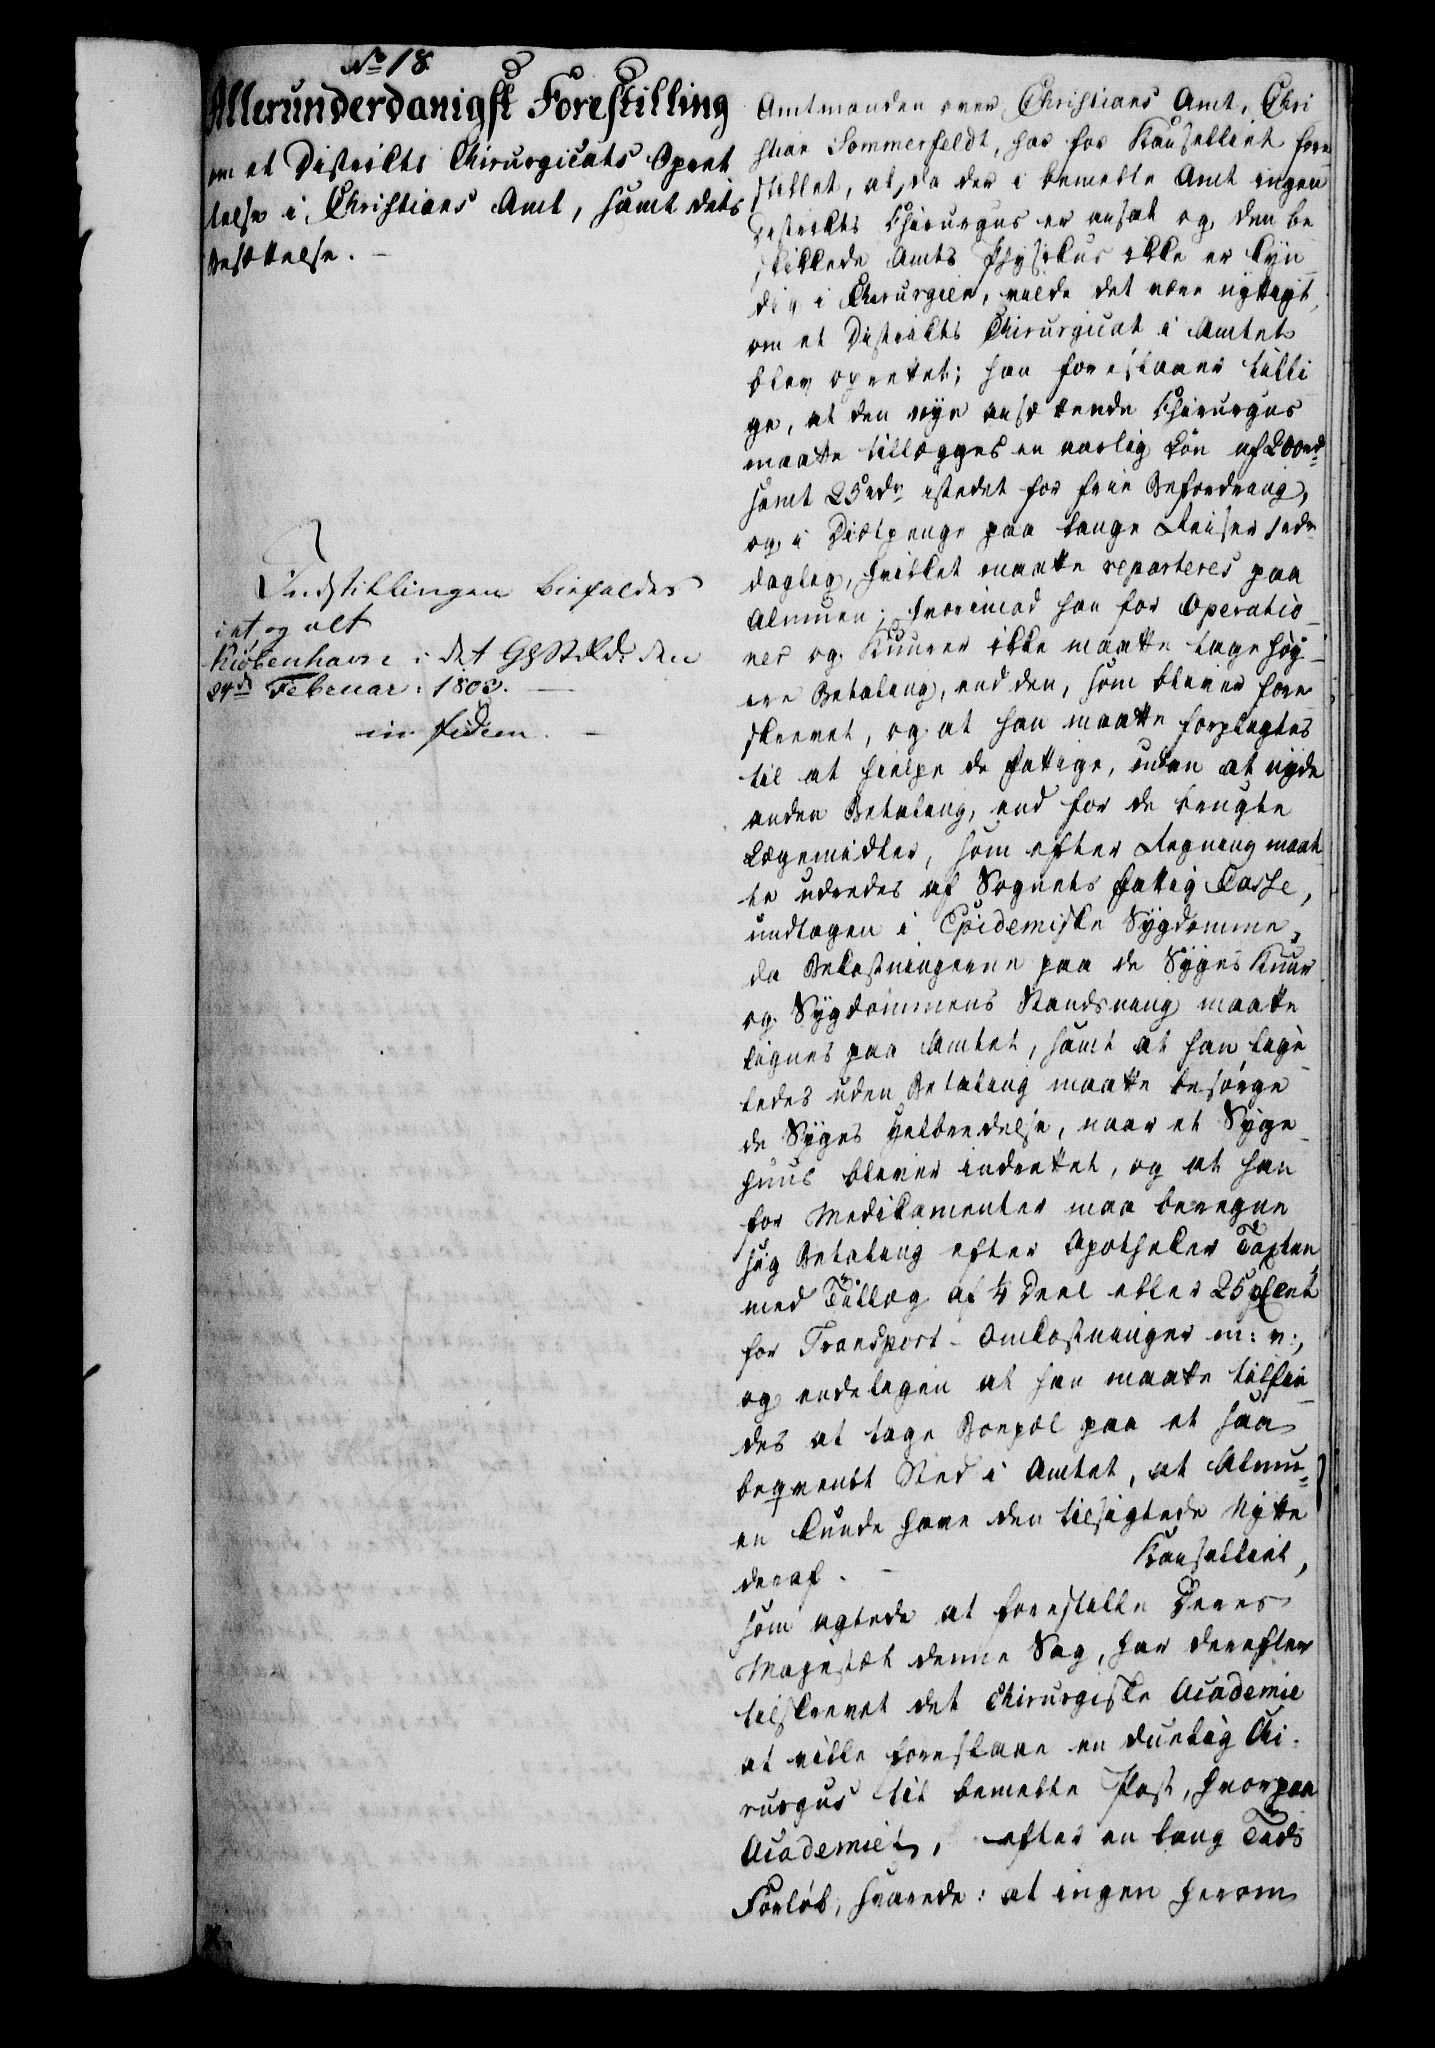 No 18
Allerunderdanigst Forestilling
om et Districkts Chirurgicats Opret
telse i Christians Amt, samt dets
Besættelse.
Indstillingen bifaldes
i et og alt
Kiøbenhavn i det Gh StRd. den
24de Februar: 1803.
in fidem.
Amtmanden over Christians Amt, Chri
stian Sommerfeldt, har for Kanselliet fore
stillet, at, da der i bemelte Amt ingen
Districkts Chirurgus er ansat og den be
skikkede Amts Physikus ikke er kyn
dig i Chirurgien, vilde det være nyttigt,
om et Districkts Chirurgicat i Amtet
blev oprettet; han foreslaaer tilli
ge, at den nye ansættende Chirurgus
maatte tillægges en aarlig Løn af 200rd
samt 25rdr istedet for frie Befordring,
og i Diætpenge paa lange Reiser 1rdr
daglig, hvilket maatte reparteres paa
Almuen; hvorimod han for Operatio
ner og Kuurer ikke maatte tage høy
ere Betaling, end den, som bliver fore
skrevet, og at han maatte forpligtes
til at hielpe de fattige, uden at nyde
anden Betaling, end for de brugte
Lægemidler, som efter Regning maat
te udredes af Sognets fattig Casse,
undtagen i Epidemiske Sygdomme,
da Bekostningerne paa de Syges Kuur
og Sygdommens Standsning maatte
lignes paa Amtet, samt at han lige
ledes uden Betaling maatte besørge
de Syges Helbredelse, naar et Syge
huus bliver indrettet, og at han
for Medikamenter maa beregne
sig Betaling efter Apotheker Taxten
med Tillæg af 1/4 Deel eller 25 pCent
for Transport-Omkostninger m: v:,
og endeligen at han maatte tilhol
des at tage Boepæl paa et saa
beqvemt Sted i Amtet, at Almu
en kunde have den tilsigtede Nytte
deraf. - Kanselliet,
som agtede at forestille Deres
Majestæt denne Sag, har derefter
tilskrevet det Chirurgiske Academie
at ville foreslaae en duelig Chi
rurgus til bemelte Post, hvorpaa
Academiet, efter en lang Tids
Forløb, svarede: at ingen herom